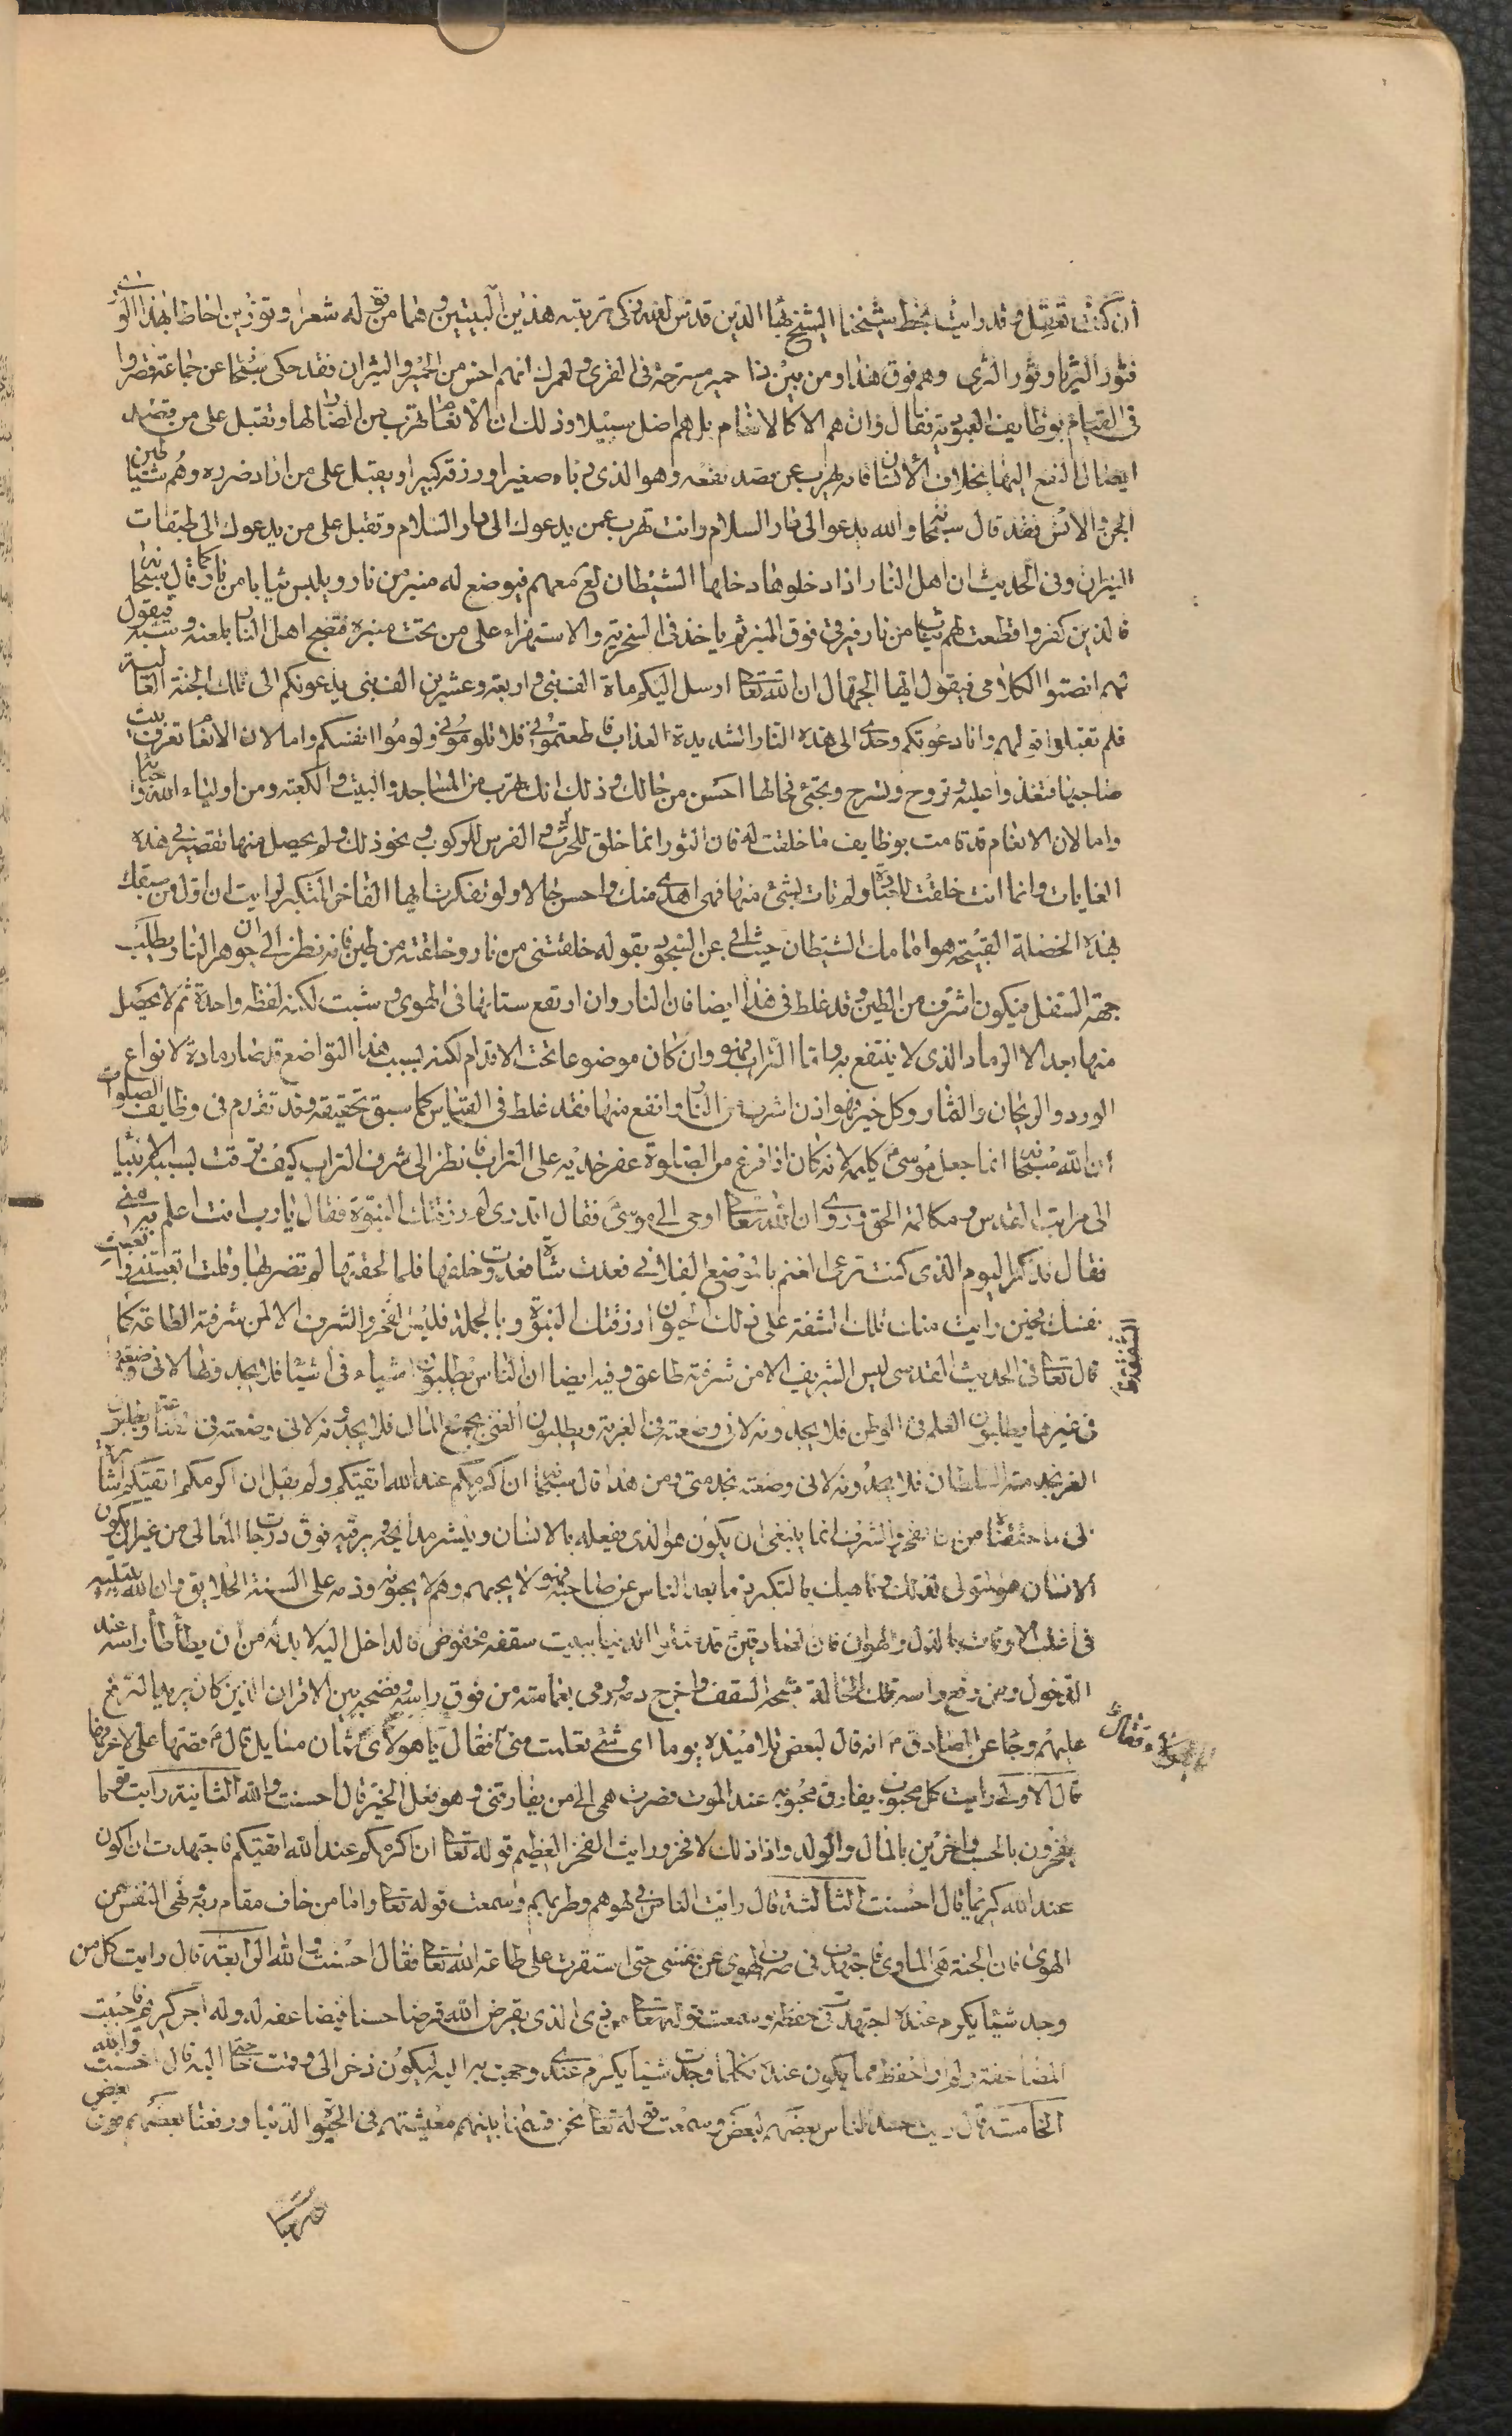 ان كنت تعقل وقد رايت بخط شيخنا الشيخ بهاء الدين قدس الله زكى تربته هذين البيتين وهما من قوله شعرا وثورين احاطا بهذا الورى
فثور الثريا وثور الثرى وهم فوق هذا ومن بين ذا حمير مسرحة فى القرى ولعمرك انهم اخس من الحمير والثيران فقد حكى سبحانه عن جماعة قصروا
فى القيام بوظايف العبودية فقال وان هم الا كالانعام بل هم اضل سبيلا وذلك ان الانعام تهرب من الضار لها وتقبل على من قصد
ايصال النفع اليها بخلاف الانسان فانه يهرب عن من قصد نفعه وهو الذى رباه صغيرا ورزقه كبيرا ويقبل على من اراد ضرره وهم شياطين
الجن والانس فقد قال سبحانه والله يدعو الى دار السلام وانت تهرب عمن يدعوك الى دار السلام وتقبل على من يدعوك الى طبقات
النيران وفى الحديث ان اهل النار اذا دخلوها دخلها الشيطان لع معهم فيوضع له منبر من نار ويلبس ثيابا من نار كما قال سبحانه
فالذين كفروا قطعت لهم ثياب من نار فيرقى فوق المنبر ثم ياخذ فى السخرية والاستهزاء على من تحت منبره فتضج اهل النار بلعنه وسبه فيقول
لهم انصتوا لكلامى فيقول ايها الجهال ان الله تعالى ارسل اليكم ماة الف نبى واربعة وعشرين الف نبى يدعونكم الى تلك الجنة العالية
فلم تقبلوا قولهم وانا دعوتكم وحدى الى هذه النار الشديدة العذاب فاطعتمونى فلا تلومونى ولوموا انفسكم واما لان الانعام تعرف بيت
صاحبها فتغدوا عليه وتروح وتسرح وتجئ فحالها احسن من حالك وذلك انك تهرب من المساجد والبيت والكعبة ومن اولياء الله واحبائه
واما لان الانعام قد قامت بوظايف ما خلقت له فان الثور انما خلق للحرث والفرس للركوب ونحو ذلك ولم يحصل منها تقصير فى هذه
الغايات وانما انت خلقت للعبادة ولم تات بشئ منها فهى اهدى منك واحسن حالا ولو تفكرت ايها الفاخر المتكبر لرايت ان اول من سبقك
بهذه الخصلة القبيحة هو امامك الشيطان حيث ابى عن السجود بقوله خلقتنى من نار وخلقته من طين فانه نظر الى ان جوهر النار يطلب
جهة السفل فيكون اشرف من الطين وقد غلط فى هذا ايضا فان النار وان ارتفع سنانها فى الهوى وشبت لكنه لحظة واحدة ثم لا يحصل
منها بعد الا الرماد الذى لا ينتفع به واما التراب فهو وان كان موضوعا تحت الاقدام لكنه بسبب هذا التواضع قد صار مادة لانواع
الورد والريحان والثمار وكل خير فهو اذن اشرف من النار وانفع منها فقد غلط فى القياس كما سبق تحقيقه وقد تقدم فى وظايف الصلوات
ان الله سبحانه انما جعل موسى كليمه لانه كان اذا فرغ من الصلوة عفر خديه على التراب فانظر الى شرف التراب كيف ترقت بسببه الانبيا
الى مراتب القدس ومكالمة الحق وروى ان الله تعالى اوحى الى موسى فقال اتدرى لم رزقتك النبوة فقال يارب انت اعلم به منى
فقال تذكر اليوم الذى كنت ترعى الغنم بالموضع الفلانى فعدت شاة فعدوت خلفها فلما لحقتها لم تضربها وقلت اتعبتنى واتعبت
نفسك فحين رايت منك تلك الشفقة على ذلك الحيوان رزقتك النبوة وبالجملة فليس الفخر والشرف الا لمن شرفته الطاعة كما
قال تعالى فى الحديث القدسى ليس الشريف الا من شرفته طاعتى وفيه ايضا ان الناس يطلبون اشياء فى اشيا فلا يجدوها لانى وضعتها
فى غيرها يطلبون العلم فى الوطن فلا يجدونه لانى وضعته فى الغربة ويطلبون الغنى بجمع المال فلا يجدونه لانى وضعته فى القناعة ويطلبون
العز بخدمة السلطان فلا يجدونه لانى وضعته بخدمتى ومن هذا قال سبحانه ان اكرمكم عند الله اتقيكم ولم يقل ان اكرمكم اتقيكم اشارة
الى ما حققناه من ان الفخر والشرف انما ينبغى ان يكون هو الذى يفعله بالانسان وينشر مدايحه ويرقيه فوق درجات المعالى من غير ان يكون
الانسان هو المتولى لذلك وناهيك بالتكبر انه ما بعد الناس عن صاحبه فهو لا يحبهم وهم لا يحبونه وذمه على السنة الخلايق وان الله يبتليه
فى اغلب الاوقات بالذل والهوان فان الصادقين قد شبهوا الدنيا ببيت سقفه مخفوض فالداخل اليه لا بد له من ان يطأطأ راسه عند
الدخول ومن رفع راسه تلك الحالة شجه السقف واخرج دمه ورمى بعمامته من فوق راسه وفضحه بين الاقران الذين كان يريد الترفع
عليهم وجاء عن الصادق ع انه قال لبعض تلاميذه يوما اى شئ تعلمت منى فقال يا مولاى ثمان مسايل قال ع قصها على لاعرفها
قال الاولى رايت كل محبوب يفارق محبوبه عند الموت فصرفت همى الى من يفارقنى وهو فعل الخير قال احسنت والله الثانية رايت قوما
يفخرون بالحسب واخرين بالمال والولد واذا ذلك لا فخر ورايت الفخر العظيم قوله تعالى ان اكرمكم عند الله اتقيكم فاجتهدت ان اكون
عند الله كريما قال احسنت الثالثة قال رايت الناس فى لهوهم وطربهم وسمعت قوله تعالى واما من خاف مقام ربه ونهى النفس عن
الهوى فان الجنة هى الماوى فاجتهدت فى صرف الهوى عن نفسى حتى استقرت على طاعة الله تعالى فقال احسنت والله الرابعة قال رايت كل من
وجد شيئا يكرم عنده اجتهد فى حفظه وسمعت قوله تعالى من ذى الذى يقرض الله قرضا حسنا فيضاعفه له وله اجر كريم فاحببت
المضاعفة ولم ار احفظ مما يكون عنده فكلما وجدت شيئا يكرم عندى وجهت به اليه ليكون ذخرا لى وقت حاجتى اليه قال احسنت والله
الخامسة قال رايت حسد الناس بعضهم لبعض وسمعت قوله تعالى نحن قسمنا بينهم معيشتهم فى الحيوة الدنيا ورفعنا بعضهم فوق بعض